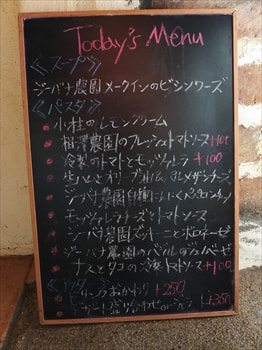 Today's Menu
《スープ》
ジーバナ農園メークインのビシソワーズ
《パスタ》
小柱のレモンクリーム
農園のフレッシュトマトソース+100
冷製のトマトとモッツァレラ+100
生ハムとオリーブ
ジーバナ農園 にんにく ペペロンチーノ
モッツァレラチーズトマトソース
ジーバナ農園ズッキーニとボロネーゼ
ジーバナ農園のバジルのジェノベーゼ
ナスとタコの冷製トマトソース+100
おかわり +250
+350